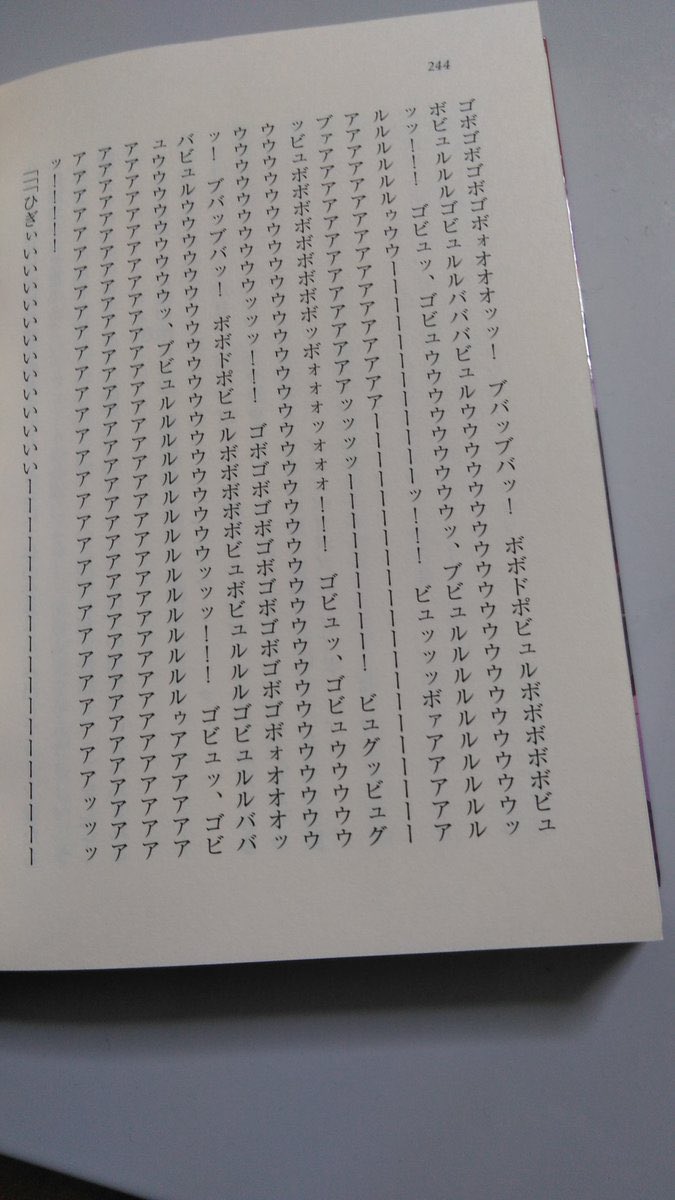 244
ゴボゴボゴボゴボォオオオッッ！　ブバッブバッ！　ボボドポビュルボボボボボビュ
ボビュルルルゴビュルルバババビュルウウウウウウウウウウウウウウウウウウウウッ
ッッ！！！　ゴビュッ、ゴビュウウウウウウウウウウッ、ブビュルルルルルルルルルル
ルルルルルルゥウウーーーーーーーーーーーーッ！！！　ビュッッッボァアアアアア
アアアアアアアアアアアアアアアアーーーーーーーーーーーーーーーーーーーーーー
ブァアアアアアアアアアアアアアアッッッッーーーーーーーーーー！　ビュグッビュグ
ッビュボボボボボボボボボボッボォォォッォォォ！！！　ゴビュッ、ゴビュウウウウウ
ウウウウウウウウウウウウウウウウウウウウウウウウウウウウウウウウウウウウウ
ウウウウウウウウウウウッッッ！！！　ゴボゴボゴボゴボゴボゴボゴボォオオオオッ
ッ！　ブバッブバッ！　ボボドポビュルボボボボボビュボビュルルルゴビュルルババ
バビュルウウウウウウウウウウウウウウウウウウウウッッッ！！！　ゴビュッ、ゴビ
ュウウウウウウウウウウッ、ブビュルルルルルルルルルルルルルルルルゥアアアアアア
アアアアアアアアアアアアアアアアアアアアアアアアアアアアアアアアアアアアア
アアアアアアアアアアアアアアアアアアアアアアアアアアアアアアアアアアアアア
アアアアアアアアアアアアアアアアアアアアアアアアアアアアアアアアアアッッッ
ッーーーーー！
「「「ひぎぃいいいいいいいいいいいいいーーーーーーーーーーーーーーーーーーーー